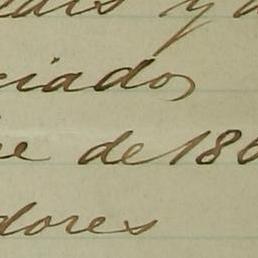 y
ciados
de 186
dores